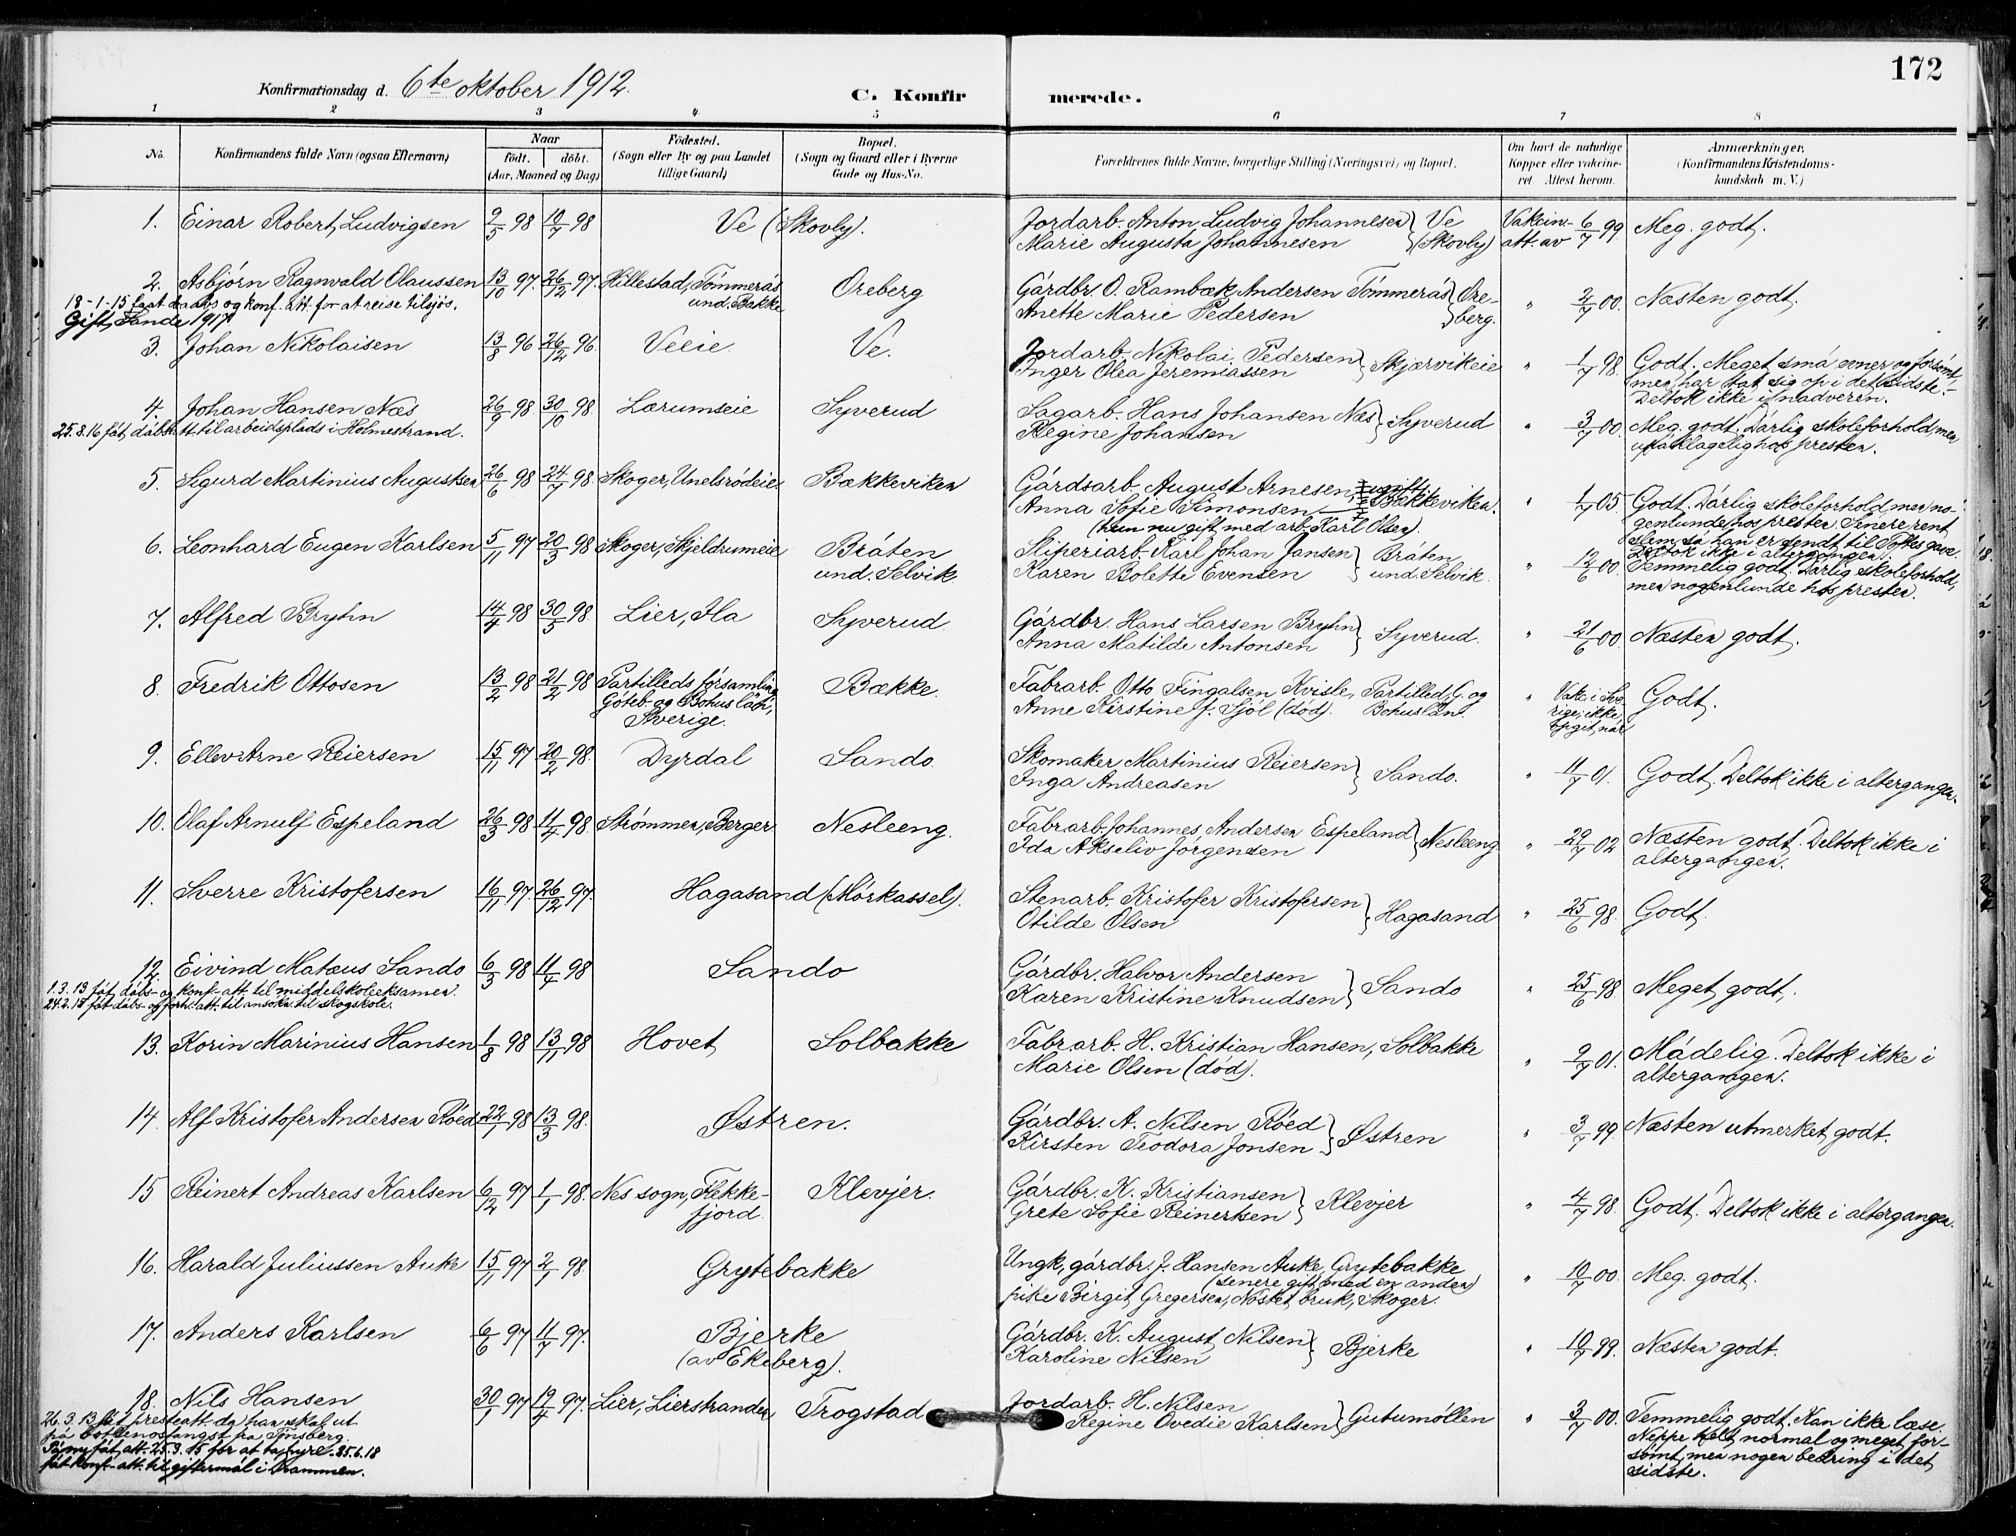 172
Konfirmationsdag d. 6te oktober 1912.
C. Konfirmerede.
1 2 3 4 5 6 7 8
No. Konfirmandens fulde Navn (ogsaa Efternavn) Naar født. døbt. (Aar, Maaned og Dag) Födested. (Sogn eller By og paa Landet tillige Gaard) Bopæl. (Sogn og Gaard eller i Byerne Gade og Hus-No. Forældrenes fulde Navne, borgerlige Stilling (Næringsvei) og Bopæl. Om havt de naturlige Kopper eller vakcineret. Attest herom. Anmærkninger. (Konfirmandens Kristendomskundskab m. V.)
1. Einar Robert Ludvigsen 9/5 98 10/7 98 Ve (Skovby). Jordarb. Anton Ludvig Johannesen } Ve Vakcin- 6/7 99 Meg. godt.
Marie Augusta Johannesen (Skovby) att. av
2. Asbjørn Ragnvald Olaussen 13/10 97. 26/12 97. Hillestad, Tømmerås Oreberg Gårdbr. O. Rambæk Andersen Tømmerås } Ore- " 2/7 00. Næsten godt.
18-1-15 faat daabs og konf. att. for at reise tilsjös. und. Bakke Anette Marie Pedersen berg.
Gift, Sande 1917.
3. Johan Nikolaisen 13/8 96 26/12 96. Veeie. Ve. Jordarb. Nikolai Pedersen } Skjærvikeie " 1/7 98. Godt. Meget små evner og forsømt
Inger Olea Jeremiassen men har tat sig op i det sidste.
Deltok ikke i nadveren.
4. Johan Hansen Næs 26/9 98 30/10 98. Lærumseie Syverud Sagarb. Hans Johansen Næs } Syverud " 3/7 00. Meg. godt. Dårlig skoleforhold, men
25.8.16 fåt dåbsatt. til arbeidsplads i Holmestrand. Regine Johansen upåklagelig hos presten.
5. Sigurd Martinius Augustsen 26/6 98 24/7 98. Skoger, Unelsrødeie. Bækkeviken Gårdsarb. August Arnesen, ugift } Bækkeviken. " 1/7 05. Godt. Dårlig skoleforhold, men no-
Anna Sofie Simonsen genlunde hos presten. Senere rent
(hun nu gift med arb. Karl Olsen). slem så han er sendt til Toftes gave.
Deltok ikke i altergangen.
6. Leonhard Eugen Karlsen 5/11 97 20/3 98 Skoger, Skjeldrumeie Bråten Sliperiarb. Karl Johan Jansen } Bråten " 12/6 00. Temmelig godt. Dårlig skoleforhold,
und. Selvik. Karen Bolette Evensen und. Selvik. men nogenlunde hos presten.
7. Alfred Bryhn 14/4 98 30/5 98. Lier, Ila Syverud. Gårdbr. Hans Larsen Bryhn } Syverud. " 21/6 00. Næsten godt.
Anna Matilde Antonsen
8. Fredrik Ottosen 13/2 98 21/2 98 Partilleds forsamling Bække. Fabrarb. Otto Fingalsen Kvisle, Partilled, G. og " Vakc. i Sve- Godt.
Göteb. og Bohus län, Anne Kirstine f. Sjöl (död). Bohuslän. rige, ikke
Sverige. opgit når
9. Ellev Arne Reiersen 15/11 97 20/2 98. Dyrdal Sando Skomaker Martinius Reiersen } Sando. " 11/7 01. Godt. Deltok ikke i altergangen.
Inga Andreasen
10. Olaf Arnulf Espeland 26/3 98 11/4 98. Strømmen, Berger Nesleeng. Fabrarb. Johannes Andersen Espeland } Nesleeng " 29/7 02 Næsten godt. Deltok ikke i
Ida Akseliv Jørgensen altergangen.
11. Sverre Kristofersen 16/11 97. 26/12 97. Hagasand (Mörkassel). Stenarb. Kristofer Kristofersen } Hagasand " 25/6 98. Godt.
Otilde Olsen
12. Eivind Matæus Sando 6/3 98 11/4 98 Sando Gårdbr. Halvor Andersen } Sando " 25/6 98 Meget godt.
1.3.13 fåt dåbs- og konf.- att. til middelskoleeksamen. Karen Kristine Knudsen
24.2.15 fåt dåbs- og forhl. att. til ansökn. til skogskole.
13. Korin Marinius Hansen 1/8 98 13/11 98 Hovet Solbakke Fabr.arb. H. Kristian Hansen, Solbakke " 9/7 01. Mådelig. Deltok ikke i
Marie Olsen (död). altergangen.
14. Alf Kristofer Andersen Röed 22/1 98 13/3 98. Østren. Gårdbr. A. Nilsen Röed } Østren " 3/7 99. Næsten utmerket godt.
Kirsten Teodora Jonsen
15 Reinert Andreas Karlsen 6/12 97 1/1 98. Nes sogn, Flekke- Klevjer. Gårdbr. K. Kristiansen } Klevjer " 4/7 98. Godt. Deltok ikke i altergangen.
fjord. Grete Sofie Reinertsen
16. Harald Juliussen Auke 15/11 97 2/1 98. Grytebakke Ungk, gårdbr. J. Hansen Auke, Grytebakke " 10/7 00. Meg. godt.
(senere gift med en anden)
pike Birgit Gregersen, Nöstet bruk, Skoger.
17. Anders Karlsen 6/6 97 11/7 97. Bjerke Gårdbr. K. August Nilsen } Bjerke " 10/7 99. Næsten godt.
(av Ekeberg). Karoline Nilsen
18. Nils Hansen 30/1 97 19/4 97. Lier, Lierstranden Trogstad Jordarb. H. Nilsen " 3/7 00. Temmelig godt. Kan ikke læse.
26.3.13 fåt presteatt. da han skal ut Regine Ovedie Karlsen } Gutumøllen Neppe helt normal og meget for-
på bottlenosfangst fra Tønsberg. sømt, men nogen bedring i det
På ny fåt att. 25.3.15 for at ta hyre. 25.6.18 sidste.
fåt konf.- att. til giftermål i Drammen.